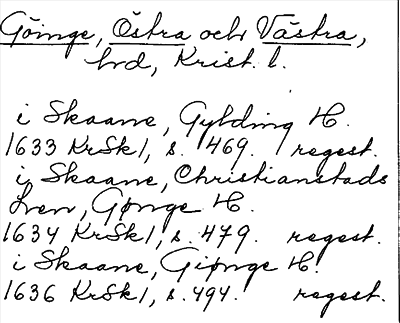 Göinge, Östra och Västra,
hrd, Krist. l.
i Skaane, Gylding H.
1633 KrSk 1, s. 469. regest.
i Skaane, Christianstads
Lven, Gønge H.
1634 KrSk 1, s. 479. regest.
i Skaane, Giønge H.
1636 KrSk 1, s. 494. regest.